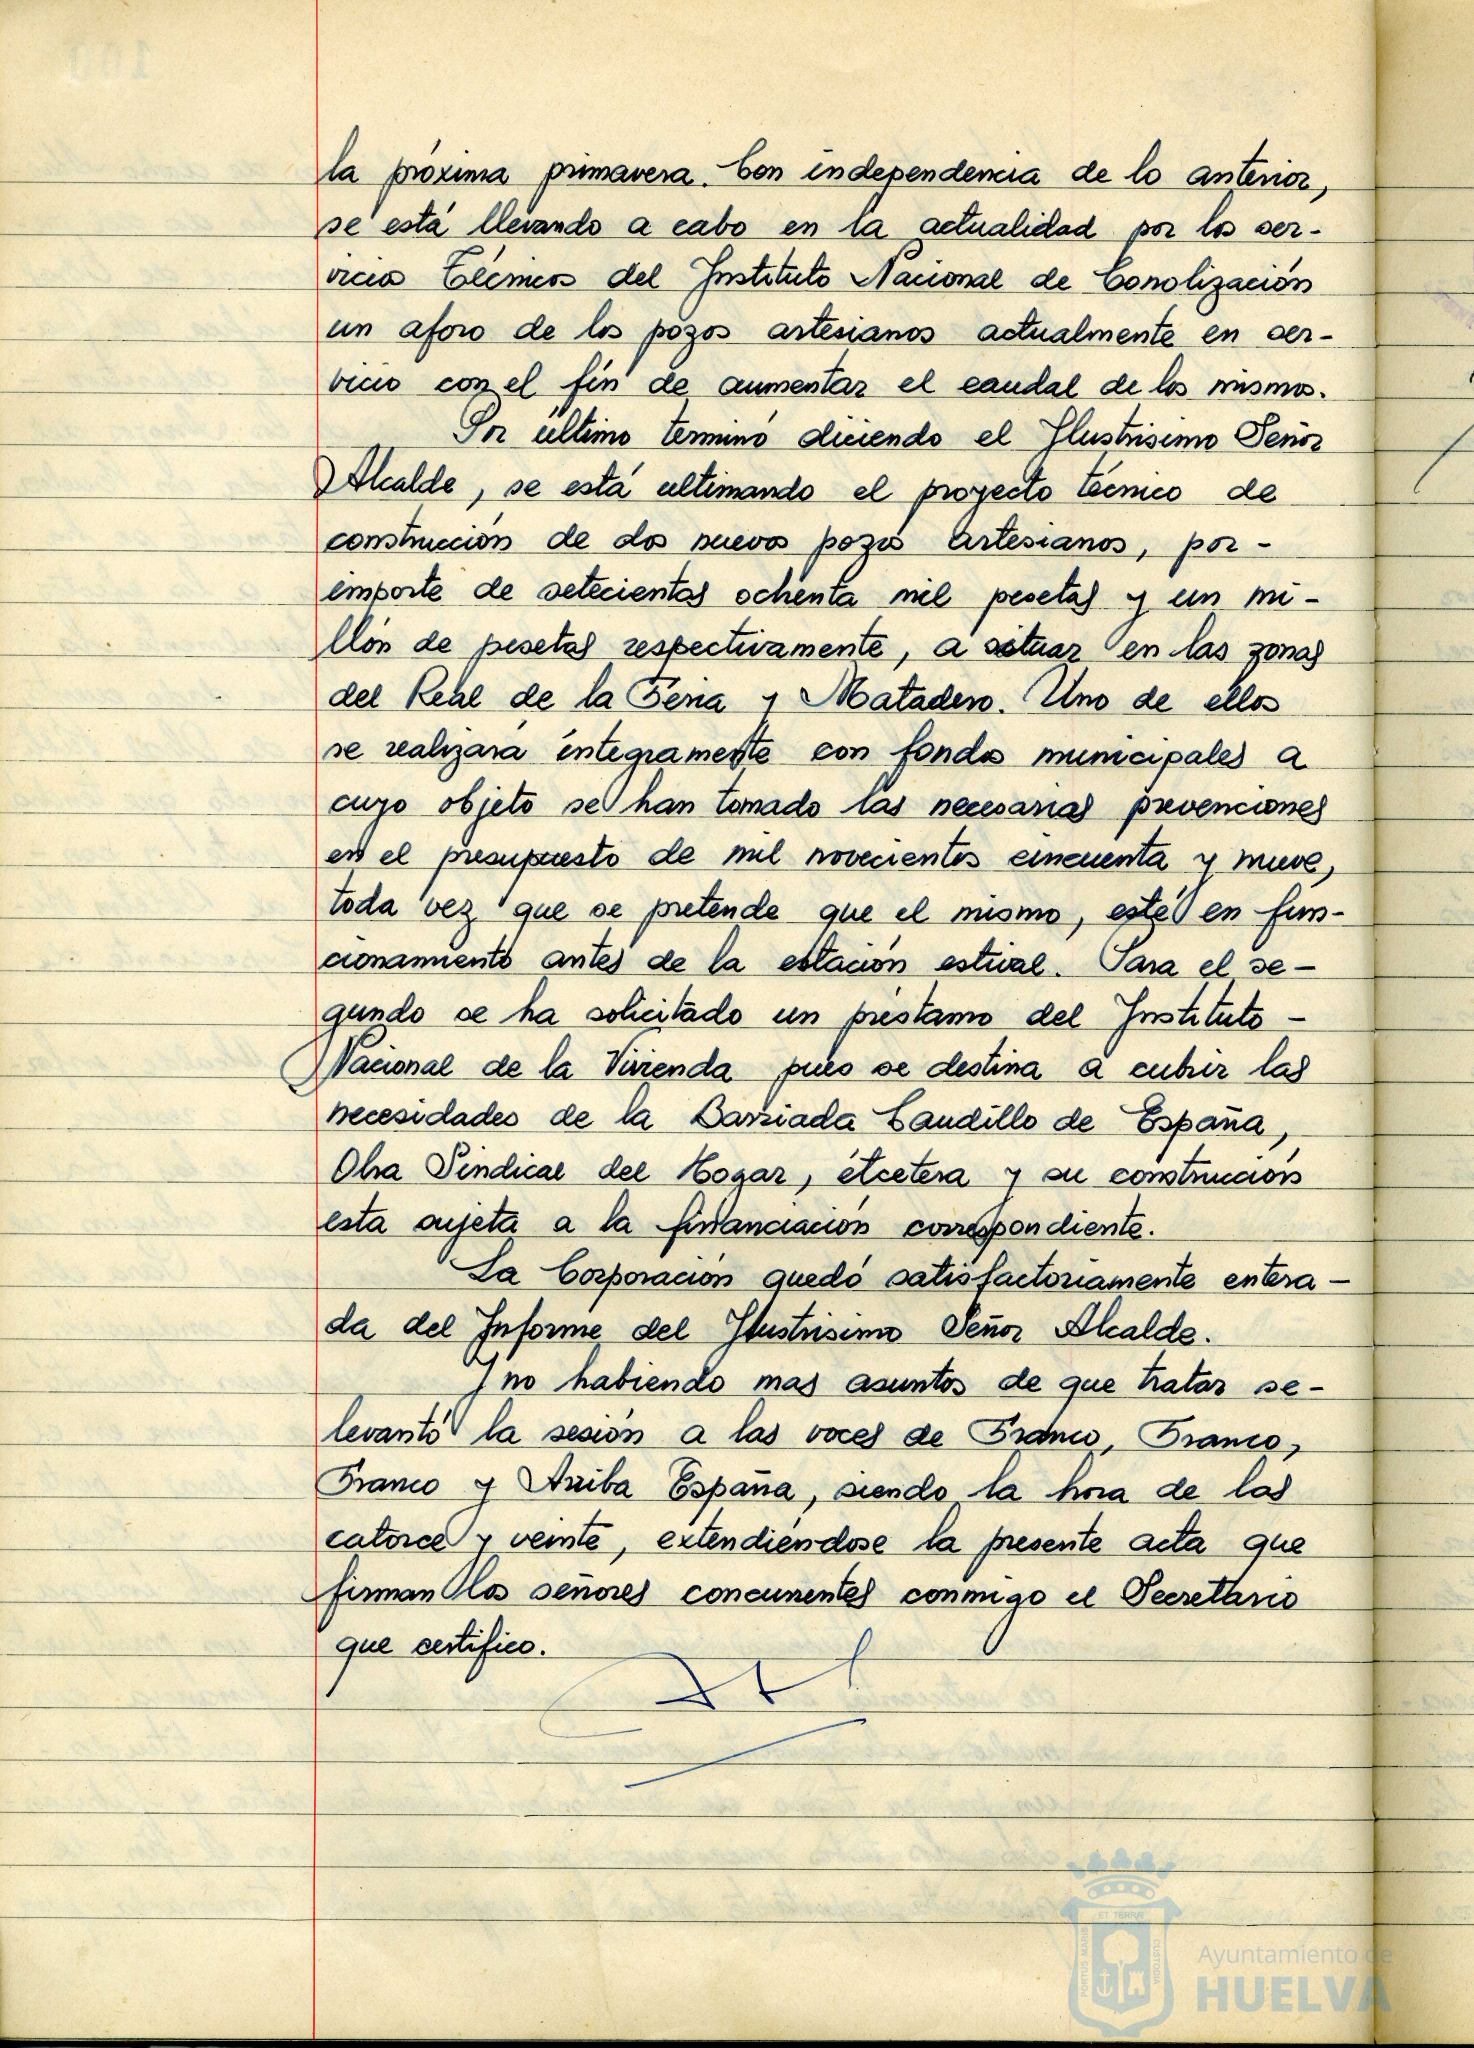 la próxima primavera. Con independencia de lo anterior,
se está llevando a cabo en la actualidad por los ser-
vicios Técnicos del Instituto Nacional de Conolización
un aforo de los pozos artesianos actualmente en ser-
vicio con el fin de aumentar el caudal de los mismos.
Por último terminó diciendo el Ilustrisimo Señor
Alcalde, se está ultimando el proyecto técnico de
construcción de dos nuevos pozos artesianos, por-
importe de setecientas ochenta mil pesetas y un mi-
llón de pesetas respectivamente, a situar en las zonas
del Real de la Feria y Matadero. Uno de ellos
se realizará integramente con fondos municipales a
cuyo objeto se han tomado las necesarias prevenciones
en el presupuesto de mil novecientos cincuenta y nueve,
toda vez que se pretende que el mismo, esté en fun-
cionamiento antes de la estación estival. Para el se-
gundo se ha solicitado un préstamo del Instituto -
Nacional de la Vivienda pues se destina a cubrir las
necesidades de la Barriada Caudillo de España,
Obra Sindical del Hogar, étcetera y su construcción
esta sujeta a la financiación correspondiente.
La Corporación quedó satisfactoriamente entera-
da del Informe del Ilustrisimo Señor Alcalde.
Y no habiendo mas asuntos de que tratar se-
levantó la sesión a las voces de Franco, Franco,
Franco y Arriba España, siendo la hora de las
catorce y veinte, extendiéndose la presente acta que
firman los señores concurrentes conmigo el Secretario
que certifico.
PORTUS MARIS ET TERRAE CUSTODIA
Ayuntamiento de
HUELVA